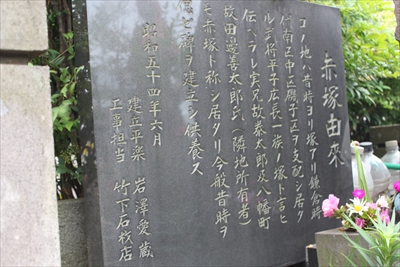 赤塚由来
コノ地ハ昔時ヨリ塚アリ鎌倉時
代南区中区磯子区ヲ支配シ居タ
ル武将平子広長一族ノ塚ト言ヒ
伝ヘラレ実兄故泰太郎及八幡町
故田邊善太郎氏(隣地所有者)
モ赤塚ト称シ居タリ今般昔時ヲ
偲ヒ碑ヲ建立シ供養ス
昭和五十四年六月
建立平楽 岩澤愛蔵
工事担当 竹下石材店